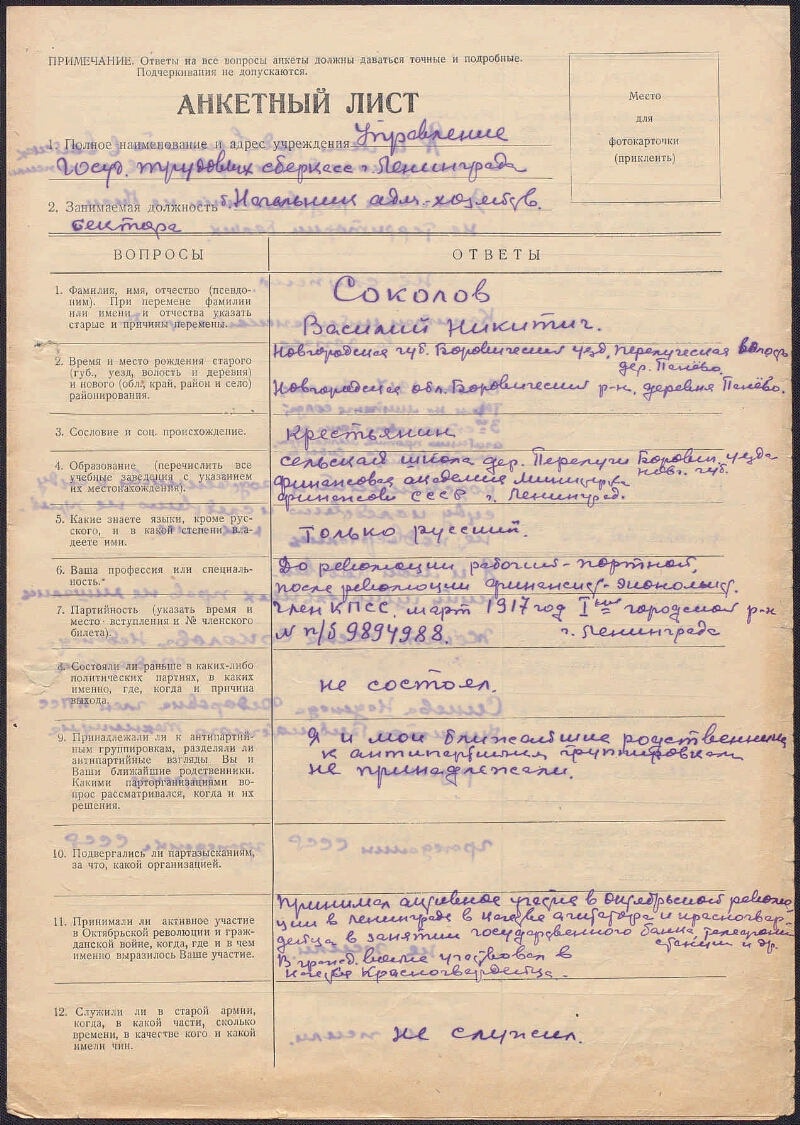 ПРИМЕЧАНИЕ. Ответы на все вопросы анкеты должны даваться точные и подробные.
Подчеркивания не допускаются.
АНКЕТНЫЙ ЛИСТ
Место
для
фотокарточки
(приклеить)
1. Полное наименование и адрес учреждения Управление
Госуд. трудовых сберкасс г. Ленинграда
2. Занимаемая должность б. Начальник адм.-хозяйств.
сектора
ВОПРОСЫ
ОТВЕТЫ
1. Фамилия, имя, отчество (псевдо-
ним). При перемене фамилии
или имени и отчества указать
старые и причины перемены.
Соколов
Василий Никитич.
2. Время и место рождения старого
(губ., уезд, волость и деревня)
и нового (обл., край, район и село)
районирования.
Новгородская губ. Боровический уезд, Перелучская волость
дер. Панёво.
Новгородская обл. Боровический р-н. деревня Панёво.
3. Сословие и соц. происхождение.
крестьянин
4. Образование (перечислить все
учебные заведения с указанием
их местонахождения).
сельская школа дер. Перелучи Борович. уезда
Новг. губ.
финансовая академия Министерства
финансов СССР г. Ленинград.
5. Какие знаете языки, кроме рус-
ского, и в какой степени вла-
деете ими.
Только русский.
6. Ваша профессия или специаль-
ность.
До революции рабочий-портной,
после революции финансист-экономист.
7. Партийность (указать время и
место вступления и № членского
билета).
член КПСС. март 1917 год Iый городской р-н
N п/б 9894988. г. Ленинграда
8. Состояли ли раньше в каких-либо
политических партиях, в каких
именно, где, когда и причина
выхода.
не состоял.
9. Принадлежали ли к антипартий-
ным группировкам, разделяли ли
антипартийные взгляды Вы и
Ваши ближайшие родственники.
Какими парторганизациями во-
прос рассматривался, когда и их
решения.
Я и мои ближайшие родственники
к антипартийным группировкам
не принадлежали.
10. Подвергались ли партвзысканиям,
за что, какой организацией.
11. Принимали ли активное участие
в Октябрьской революции и граж-
данской войне, когда, где и в чем
именно выразилось Ваше участие.
Принимал активное участие в октябрьской револю-
ции в Ленинграде в качестве агитатора и красногвар-
дейца в занятии государственного банка, телефонной
станции и др.
В гражд. войне участвовал в
качестве Красногвардейца.
12. Служили ли в старой армии,
когда, в какой части, сколько
времени, в качестве кого и какой
имели чин.
не служил.